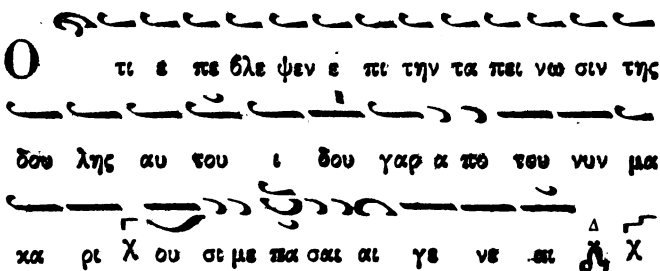 Ο τι ε πε βλε ψεν ε πι την τα πει νω σιν της
δου λης αυ του ι δου γαρ α πο του νυν μα
κα ρι χ ου σι με πα σαι αι γε νε αι χ